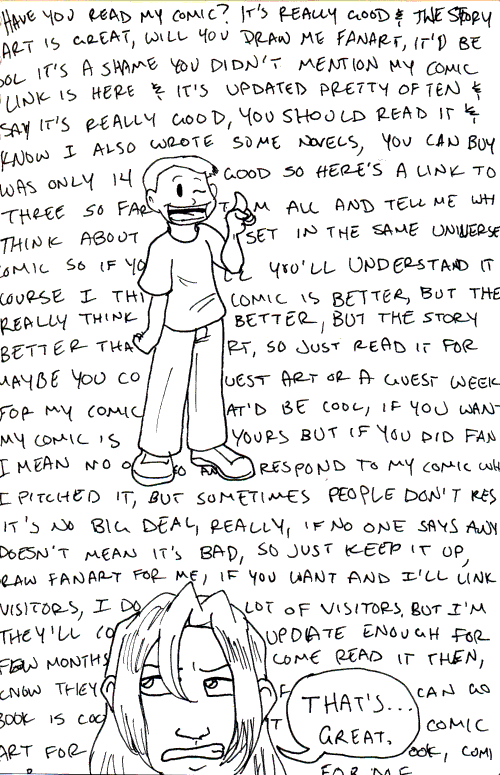 HAVE YOU READ MY COMIC? IT'S REALLY GOOD & THE STORY
ART IS GREAT, WILL YOU DRAW ME FANART, IT'D BE
OOL IT'S A SHAME YOU DIDN'T MENTION MY COMIC
LINK IS HERE & IT'S UPDATED PRETTY OFTEN &
SAY IT'S REALLY GOOD, YOU SHOULD READ IT &
KNOW I ALSO WROTE SOME NOVELS, YOU CAN BUY
WAS ONLY 14 GOOD SO HERE'S A LINK TO
THREE SO FAR M ALL AND TELL ME WH
THINK ABOUT SET IN THE SAME UNIVERSE
COMIC SO IF YO LL YOU'LL UNDERSTAND IT
COURSE I THI COMIC IS BETTER, BUT THE
REALLY THINK BETTER, BUT THE STORY
BETTER THA RT, SO JUST READ IT FOR
MAYBE YOU CO UEST ART OR A GUEST WEEK
FOR MY COMIC AT'D BE COOL, IF YOU WAN
MY COMIC IS YOURS BUT IF YOU DID FAN
I MEAN NO O RESPOND TO MY COMIC WH
I PITCHED IT, BUT SOMETIMES PEOPLE DON'T RES
IT'S NO BIG DEAL, REALLY, IF NO ONE SAYS ANY
DOESN'T MEAN IT'S BAD, SO JUST KEEP IT UP,
RAW FANART FOR ME, IF YOU WANT AND I'LL LINK
VISITORS, I DO LOT OF VISITORS, BUT I'M
THEY'LL CO UPDATE ENOUGH FOR
FEW MONTHS COME READ IT THEN,
KNOW THEY F CAN GO
BOOK IS COO T COMIC
ART FOR OOK, COMI
FOR ME
THAT'S...
GREAT.